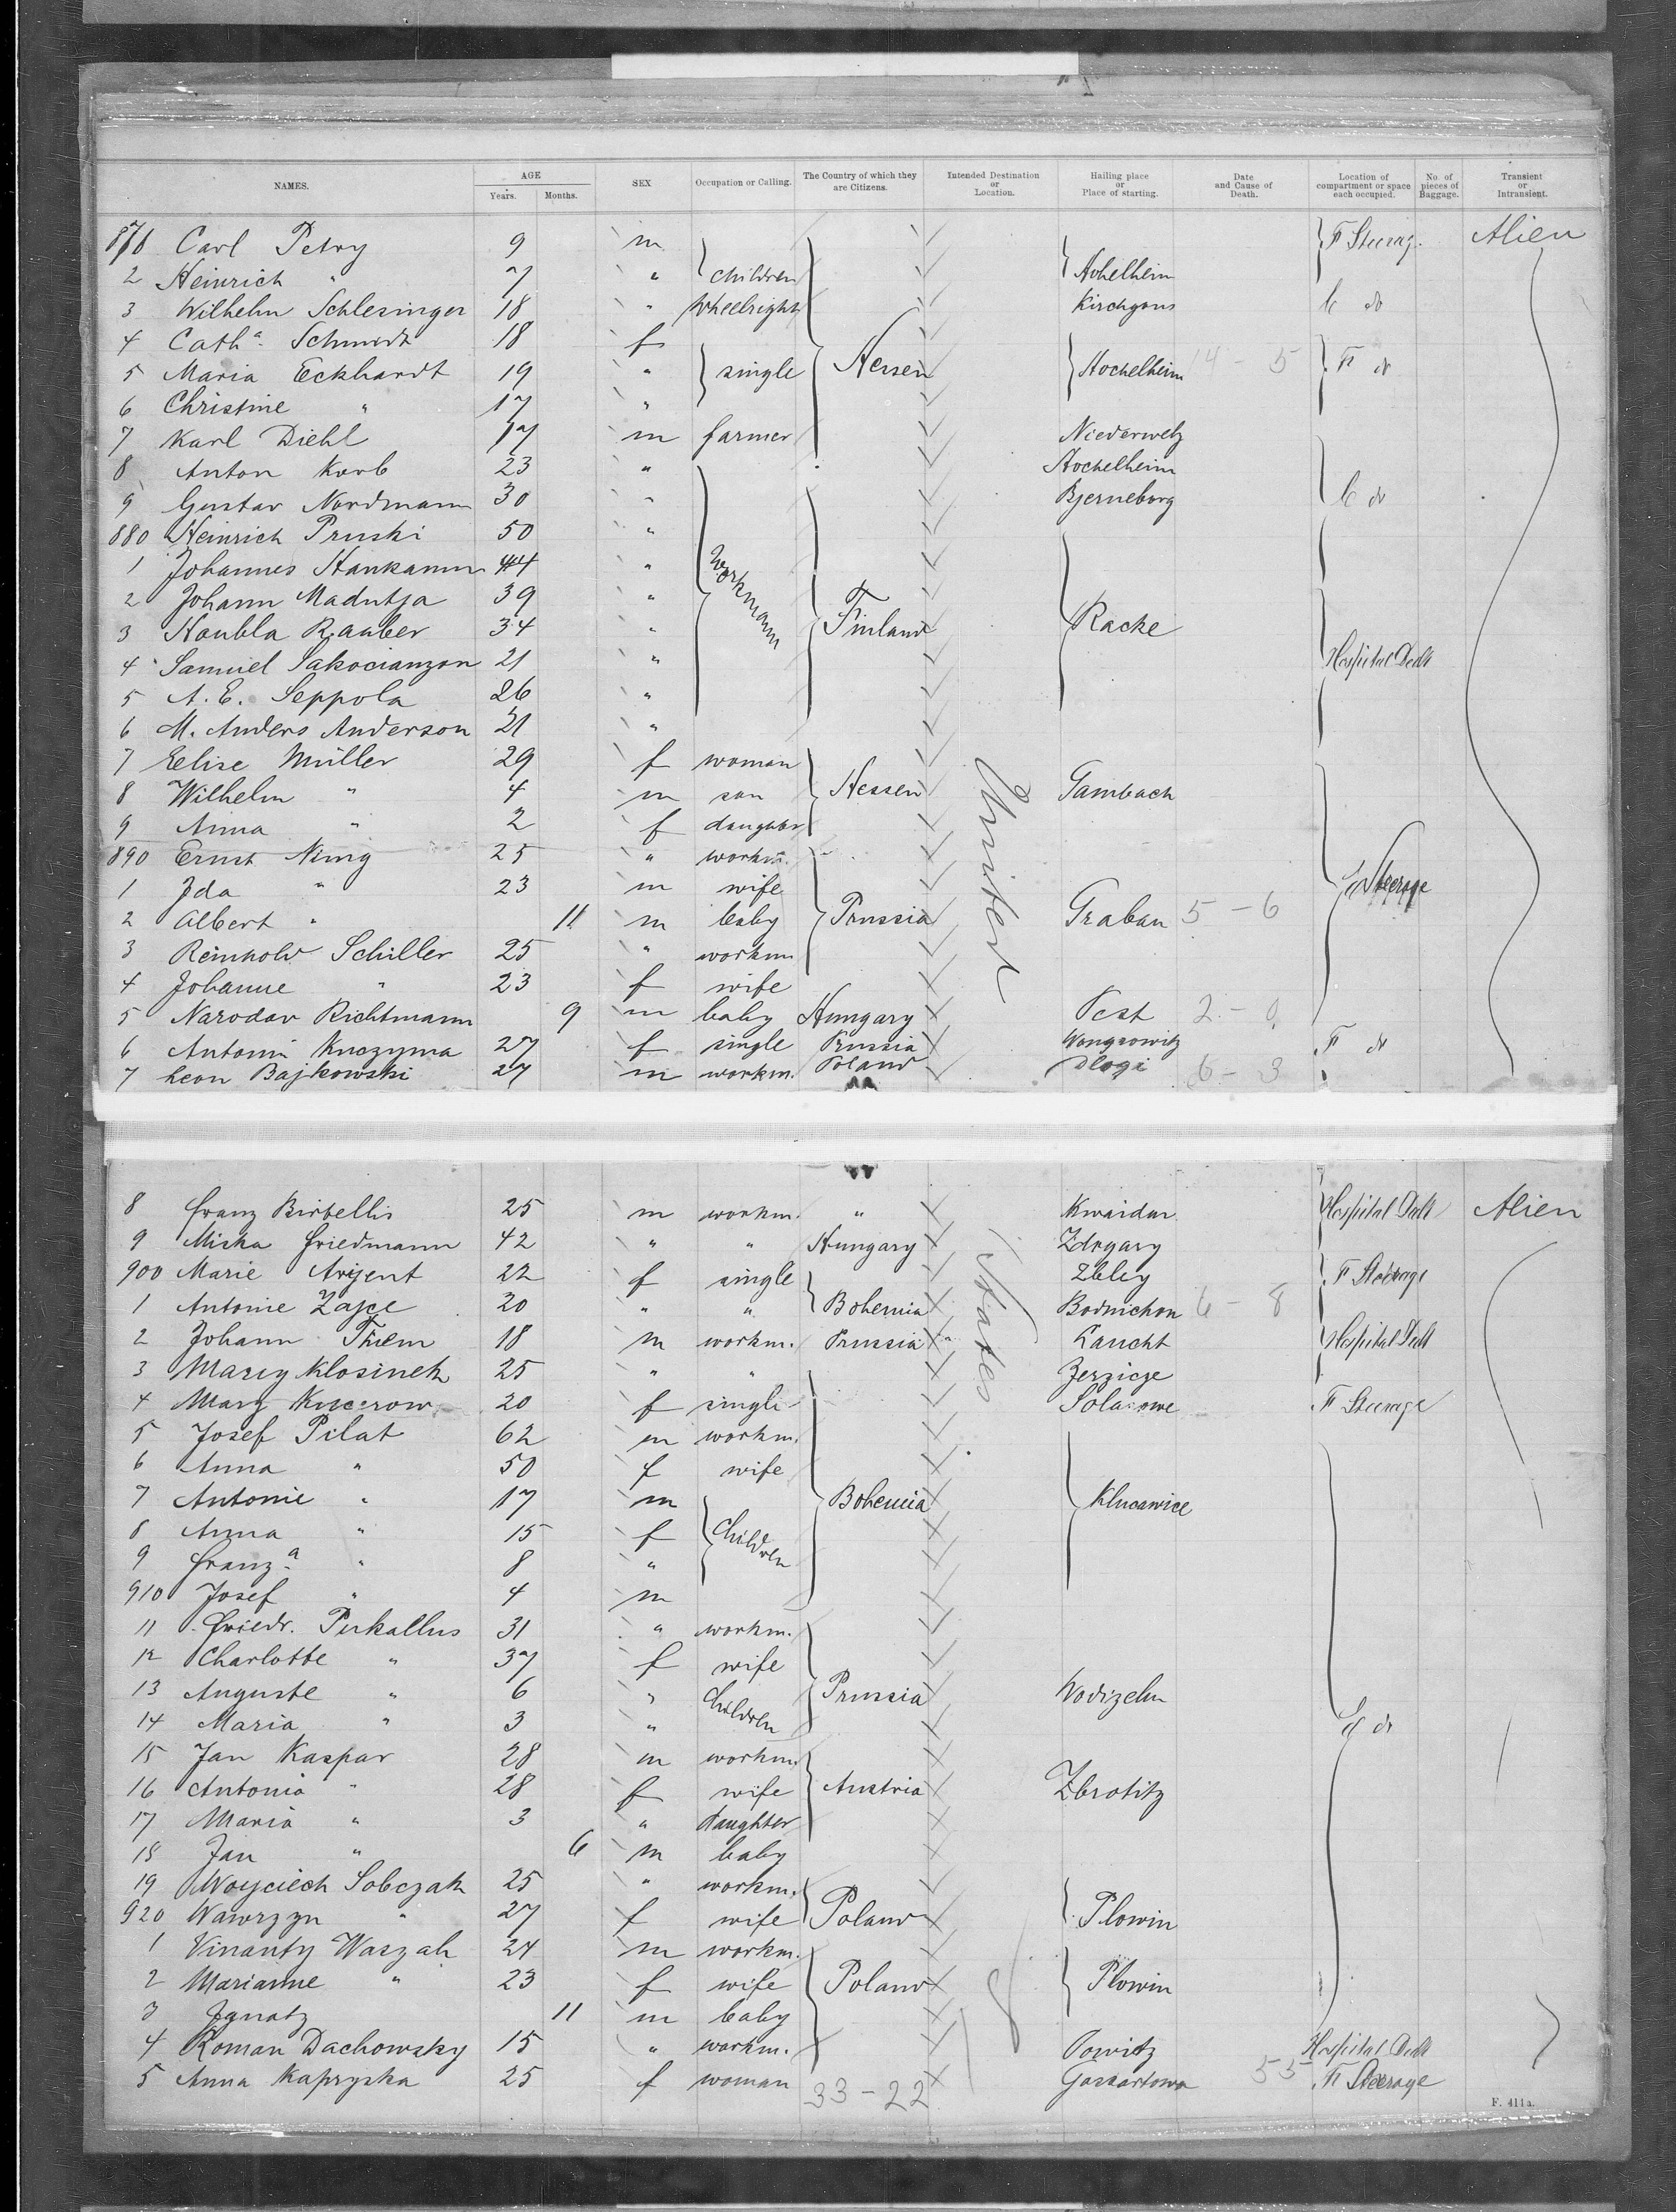 NAMES. AGE SEX Occupation or Calling. The Country of which they are Citizens. Intended Destination or Location. Hailing place or Place of starting. Date and Cause of Death. Location of compartment or space each occupied. No. of pieces of Baggage. Transient or Intransient.
Years. Months.
Carl Petry 9 m F Steerag. Alien
2 Heinrich " 7 " children
3 Wilhelm Schlesinger 18 " Wheelright Kirchgons do
4 Cath.a Schmidt 18 f
5 Maria Eckhardt 19 " single Hessen Hochelheim 14 - 5 F do
6 Christine " 17 "
7 Karl Diehl 17 m farmer Niederwetz
8 Anton Korb 23 " Hochelheim
9 Gustav Nordmann 30 " Bjerneborg do
880 Heinrich Pruski 50 "
1 Johannes Hankamm 44 " Workmann
2 Johann Madutja 39 "
3 Haubla Raaber 34 " Finland Racke
4 Samuel Sakocianzon 21 " Hospital Deck
5 A. E. Seppola 26 "
6 M. Anders Anderson 21 "
7 Elise Müller 29 f woman
8 Wilhelm " 4 m son Hessen Gambach
9 Anna " 2 f daughter
890 Ernst Ning 25 " workm.
1 Ida " 23 m wife Steerage
2 Albert " 11 m baby Prussia United Graban 5 - 6
3 Reinhold Schiller 25 " workm
4 Johanne " 23 f wife
5 Narodav Richtmann 9 m baby Hungary Pest 2 - 0
6 Antoni Kuczyma 27 f single Prussia Wongrowitz F do
7 Leon Bajkowski 27 m workm. Poland Dlogi 6 - 3
8 Franz Birbellis 25 m workm. " Kwaidan Hospital Deck Alien
9 Miska Friedmann 42 " " Hungary Zdrgary
900 Marie Arijent 22 f single Zbley F Steerage
1 Antonie Zajce 20 " " Bohemia Bodnichon 6 - 8
2 Johann Thiem 18 m workm. Prussia " States Laucht Hospital Deck
3 Mariy Klosinek 25 " " Zerzicze
4 Mary Kucerow 20 f single F Steerage
5 Josef Pilat 62 m workm.
6 Anna " 50 f wife
7 Antonie " 17 m Bohemia Klucawice
8 Anna " 15 f Children
9 Franz.a " 8 "
910 Josef " 4 m
11 Friedr. Pukallus 31 " workm.
12 Charlotte " 37 f wife
13 Auguste " 6 " Children Prussia Wodizehn
14 Maria " 3 " do
15 Jan Kaspar 28 m workm.
16 Antonia " 28 f wife Austria Zbrotitz
17 Maria " 3 " daughter
18 Jan " 6 m baby
19 Woyciech Sobczak 25 " workm.
920 Wawrzyn " 27 f wife Poland Plowin
1 Vinanty Waszak 24 m workm.
2 Marianne " 23 f wife Poland Plowin
3 Ignatz 11 m baby
4 Roman Dachowsky 15 " workm. Powitz Hospital Deck
5 Anna Kapryska 25 f woman 33-22 Gassartowa 55 F Steerage
F. 411a.